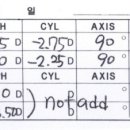 일
H CYL AXIS
5 D -2.75 D 90 °
0 D -2.25 D 90 °
H CYL AXIS
0 D ) not add
.500 D